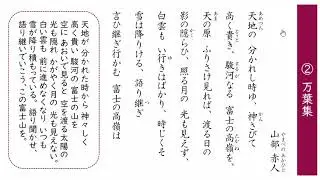 ② 万葉集
山部 赤人
やまべの あかひと
天地の 分かれし時ゆ、神さびて
高く貴き、駿河なる 富士の高嶺を、
天の原 ふりさけ見れば 渡る日の
影の隠らひ、照る月の 光も見えず、
白雲も い行きはばかり、時じくそ
雪は降りける、語り継ぎ
言ひ継ぎ行かむ 富士の高嶺は
天地が 分かれた時から 神々しく
高く貴い 駿河の 富士の山を
空に あおいで見ると 空を渡る太陽の
光も隠れ かがやく月の 光も見えない。
白い雲も 前に進めなくなり いつも
雪が降り積もっている。語り聞かせ、
語り継いでいこう この富士山を。